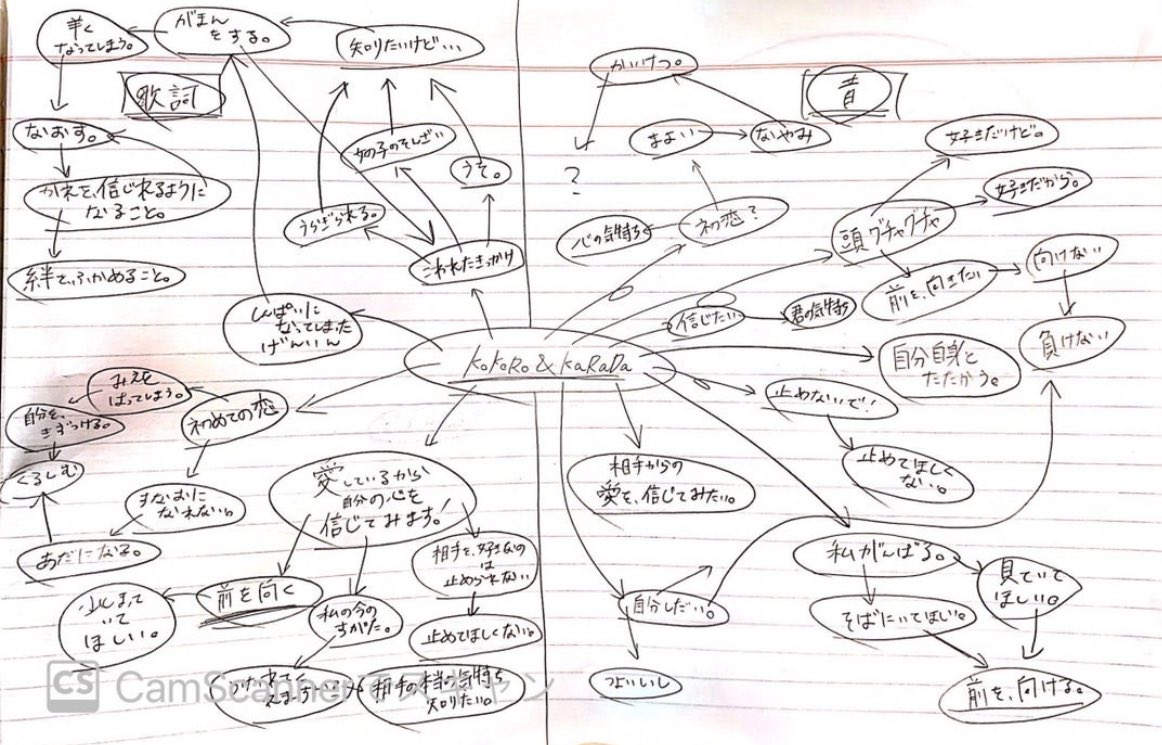 がまん
をする。
なってしまう。
知りたいけど…
歌詞
なおす。
女の子のそんざい
うそ。
うらぎられる。
こわれたきっかけ
かれを、信じれるように
なること。
絆で、ふかめること。
しんぱいに
なってしまった
げんいん
かいけつ。
?
まよい
ないやみ
初恋?
心の気持ち
好きだけど。
好きだから。
頭グチャグチャ
前を、向きたい
向けない
負けない
信じたい
君の気持ち
KoKoRo & KaRaDa
自分自身と
たたかう。
止めないで!
止めてほしく
ない。
みえを
はってしまう。
自分を、
きずつける。
くるしむ
初めての恋
すなおに
なれない。
あだになる。
愛しているから
自分の心を
信じてみます。
相手を、好きなの
は
止められない
止めてほしくない。
前を向く
いて
ほしい。
私の今の
すがた。
相手の本当の気持ち
知りたい。
相手からの
愛を、信じてみたい。
自分しだい。
つよいいし
私がんばる。
そばにいてほしい。
見ていて
ほしい。
前を、向ける。
CS CamScannerでスキャン